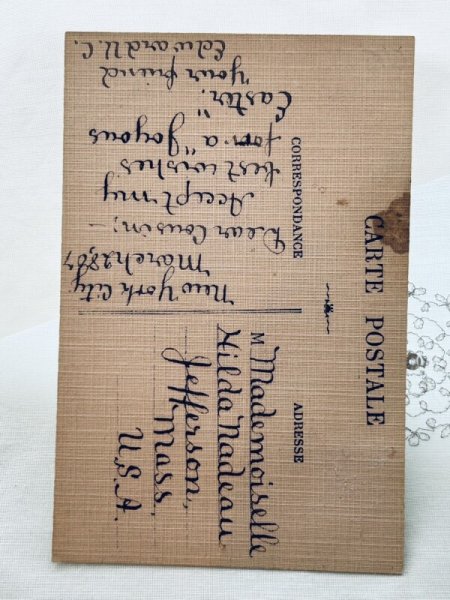 CARTE POSTALE
CORRESPONDANCE
ADRESSE
New York City
March 28,07
Dear Cousin; —
Accept my
best wishes
for a "Joyous
Easter."
Your friend
Edward U. C.
M Mademoiselle
Hilda Nadeau
Jefferson,
Mass.
U.S.A.